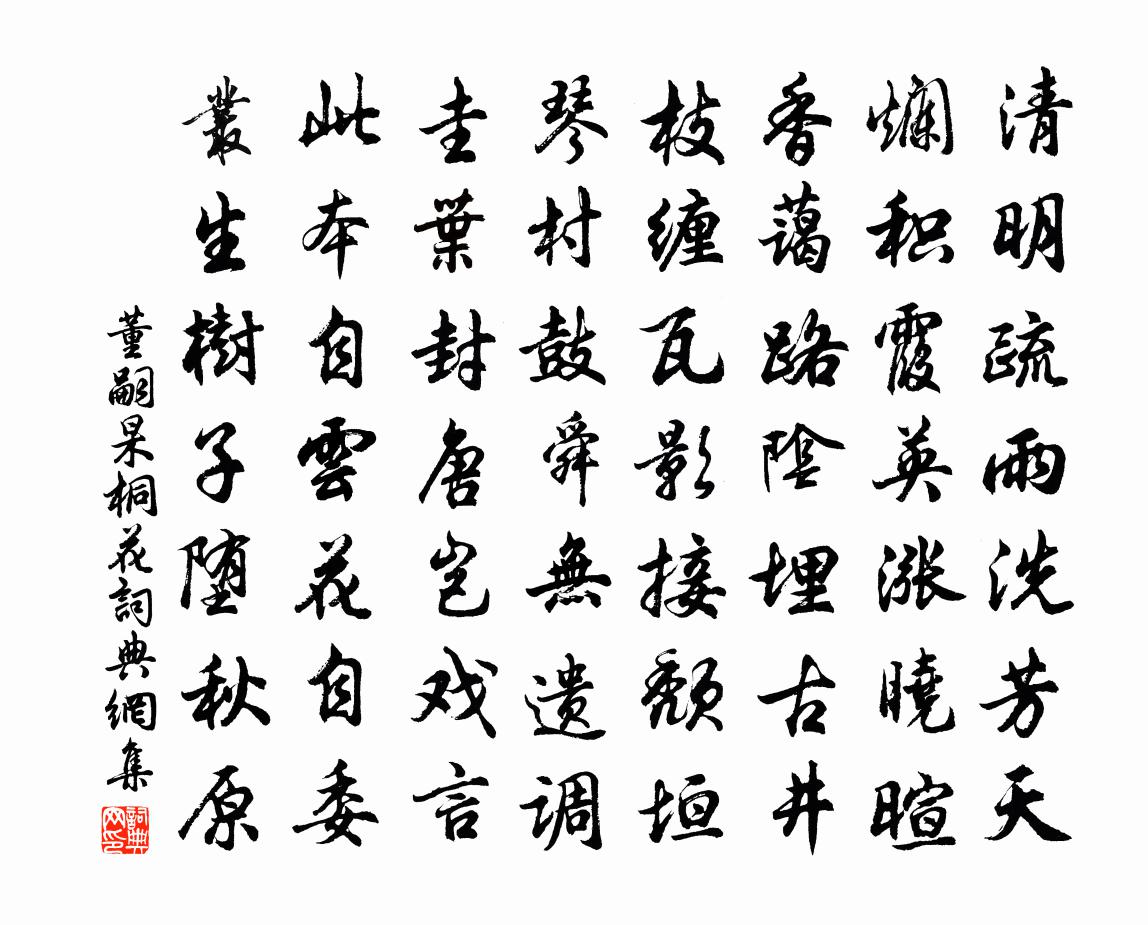 清明疏雨洗芳天
爛积霞英漲曉暄
香藹路陰埋古井
枝缠瓦影接頹垣
琴材鼓舜無遗调
圭葉封唐豈戏言
此本自雲花自委
叢生樹子堕秋原
董嗣杲桐花詞典網集
詞典网印